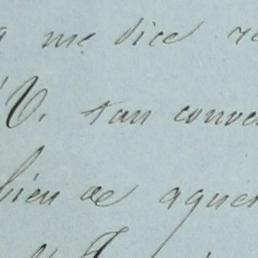 me dice
V. tan conve
bien de aque